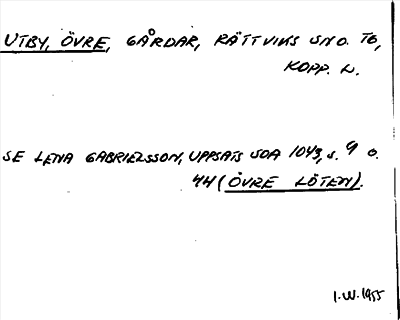 UTBY, ÖVRE, GÅRDAR, RÄTTVIKS SND. TG,
KOPP. L.
SE LENA GABRIELSSON, UPPSATS SOA 1043, s. 9 o.
44 (ÖVRE LÖTEN).
I.W. 1955